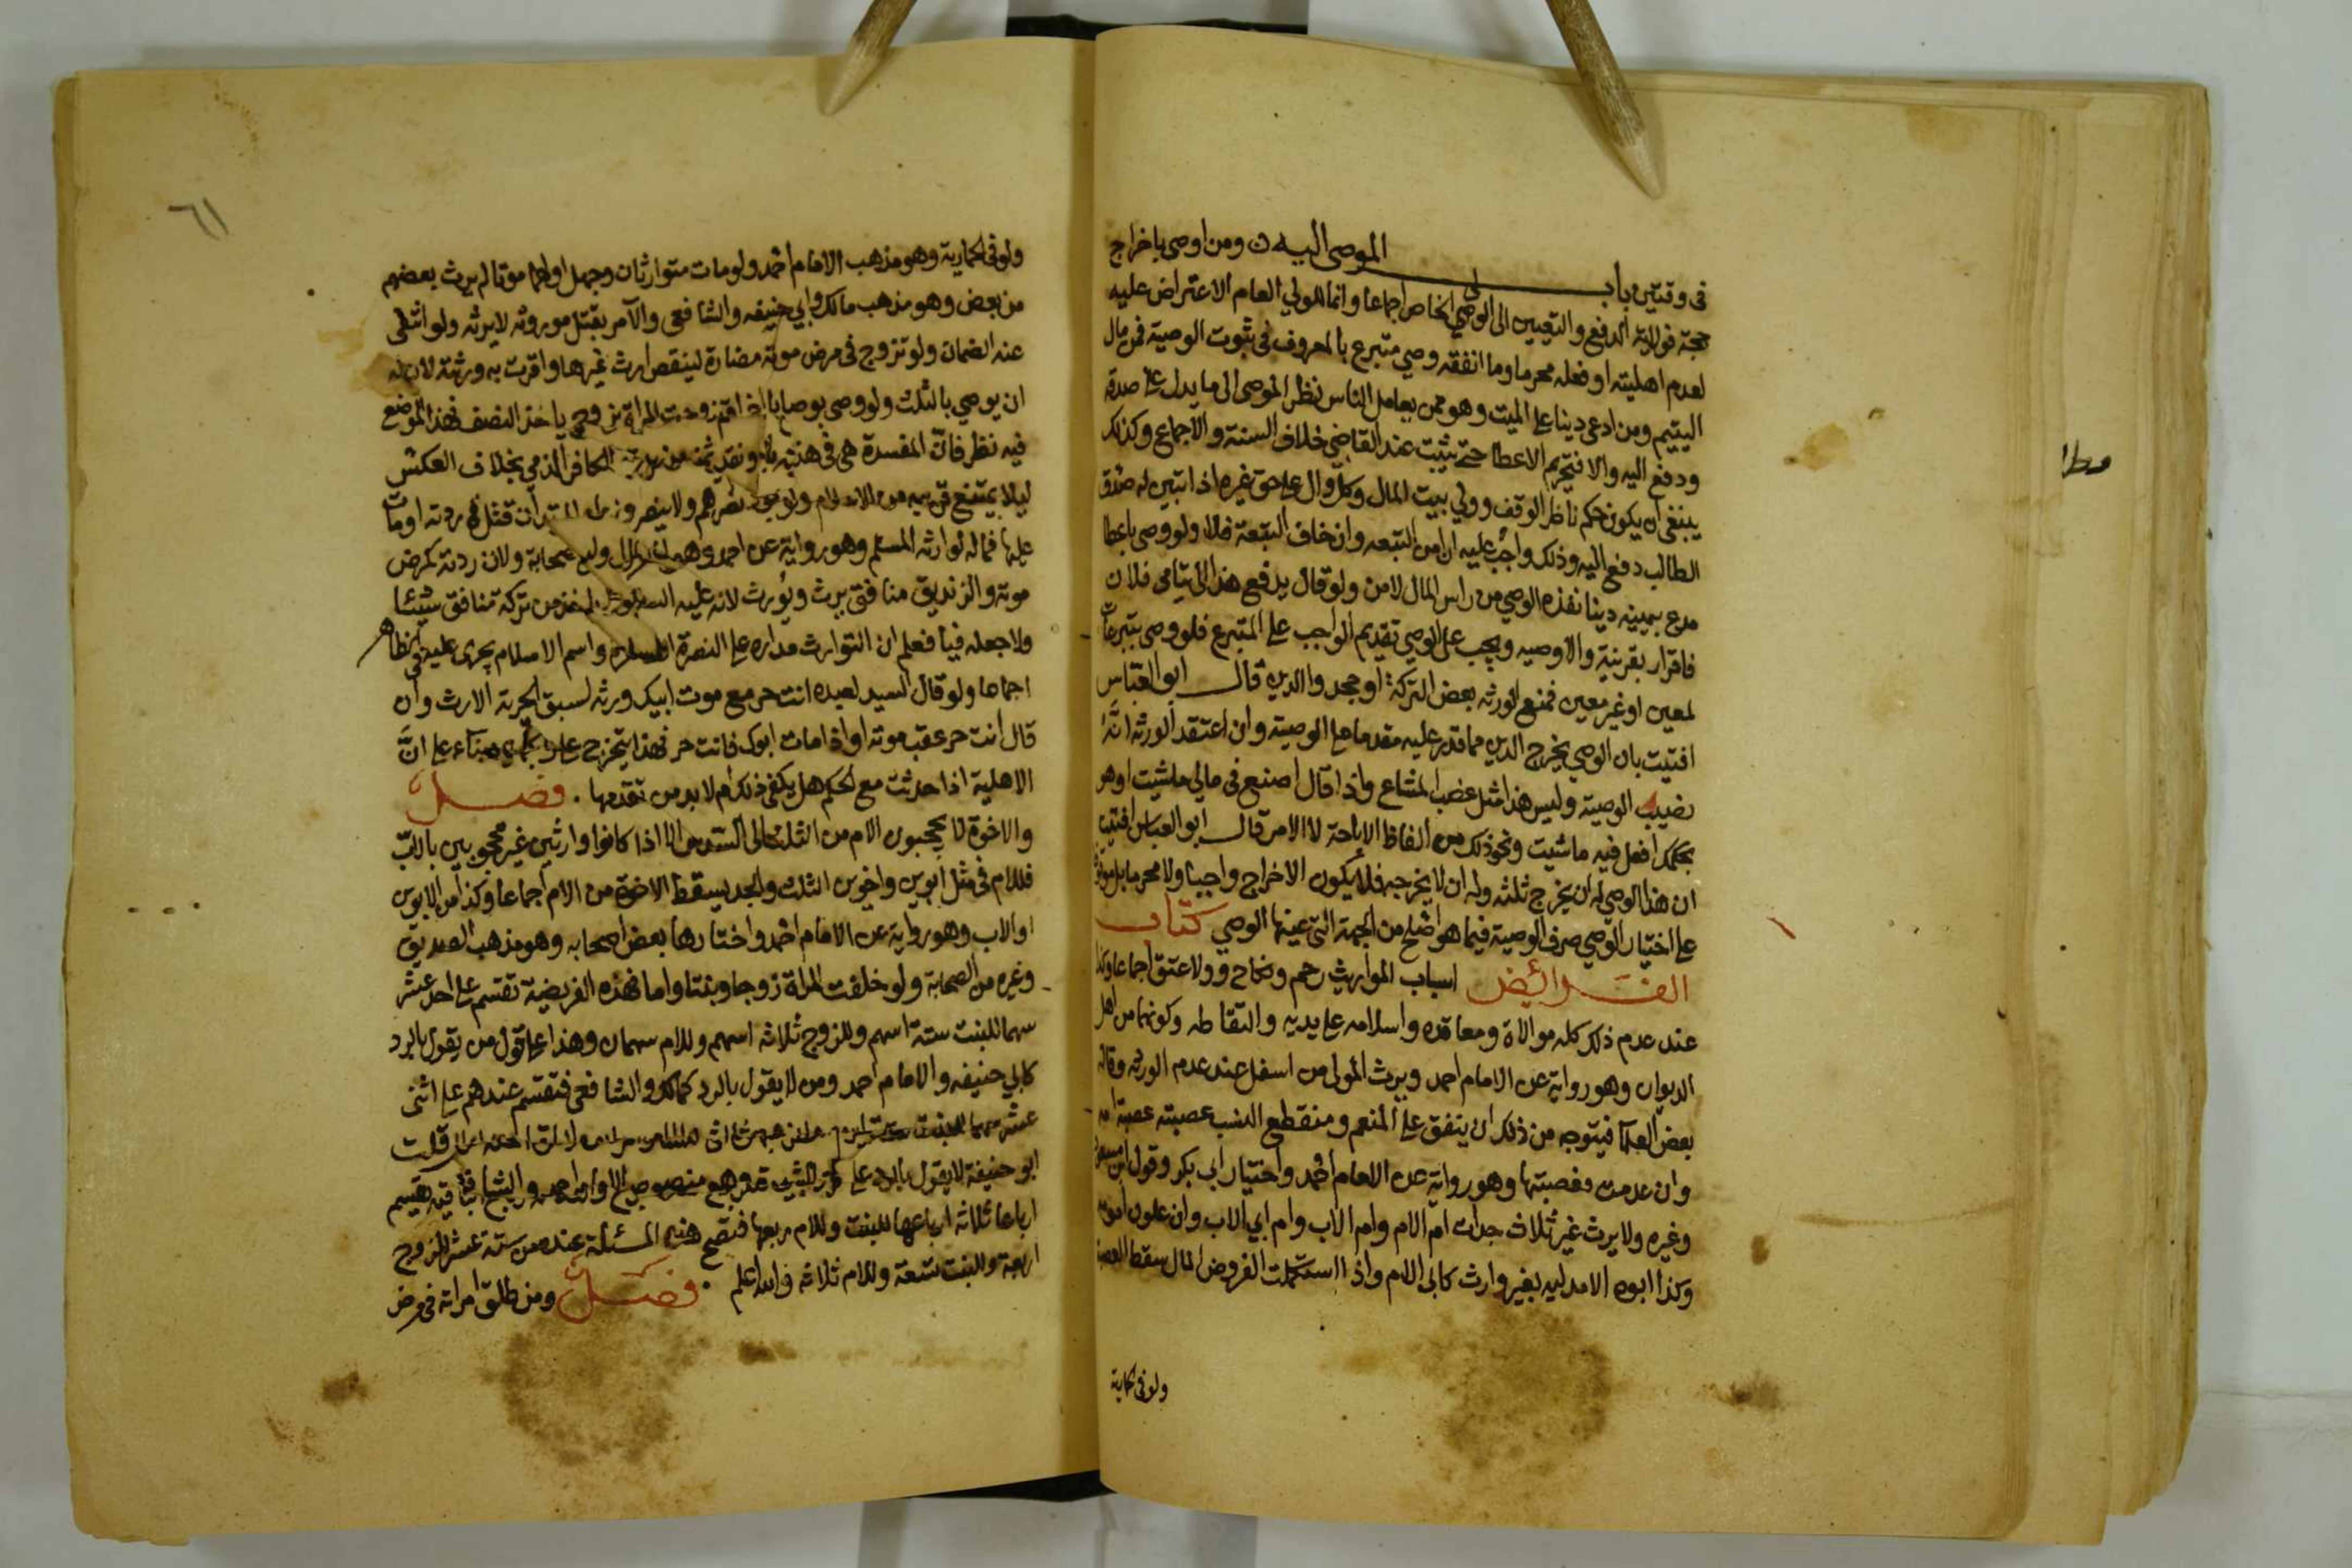 في وقتين باب الموصى اليه ومن اوصى باخراج
حجة فولاية الدفع والتعيين الى الوصي الخاص اجماعا وانما للولي العام الاعتراض عليه
لعدم اهليته او فعله محرما وما انفقه وصي متبرع بالمعروف في ثبوت الوصية فمن مال
اليتيم ومن ادعى دينا على الميت وهو ممن يعامل الناس نظر الموصى الى ما يدل على صدقه
ودفع اليه والا فتحريم الاعطا حتى يثبت عند القاضي خلاف السنة والاجماع وكذلك
ينبغي ان يكون حكم ناظر الوقف وولي بيت المال وكل وال على حق غيره اذا تبين له صدق
الطالب دفع اليه وذلك واجب عليه ان امن التبعه وان خاف التبعة فلا ولو وصى باعطا
مدع بيمينه دينا نفذه الوصي من راس المال لا من ولو قال يدفع هذا الى يتامى فلان
فاقرار بقرينة والا وصيه ويجب على الوصي تقديم الواجب على المتبرع فلو وصى بتبرعات
لمعين او غير معين فمنع الورثه بعض التركة او جحدوا الدين قال ابو العباس
افتيت بان الوصي يخرج الدين مما قدر عليه مقدما على الوصية وان اعتقد الورثه انه
نصيب الوصية وليس هذا مثل غصب المشاع واذا قال اصنع في مالي ما شيت او هو
بحكمك افعل فيه ما شيت ونحو ذلك من الفاظ الاباحة لا الامر قال ابو العباس افتيت
ان هذا الوصي له ان يخرج ثلثه وله ان لا يخرجه فلا يكون الاخراج واجبا ولا محرما بل موقوف
على اختيار الوصي صرف الوصية فيما هو اصلح من الجهة التي عينها الوصي كتاب
الفرائض اسباب المواريث رحم ونكاح وولا عتق اجماعا وكذا
عند عدم ذلك كله موالاة ومعاقده واسلامه على يديه والتقاطه وكونهما من اهل
الديوان وهو رواية عن الامام احمد ويرث المولى من اسفل عند عدم الورثه وقاله
بعض العلما فيتوجه من ذلك ان ينفق على المنعم ومنقطع النسب عصبته عصبة امه
وان عدمت فعصبتها وهو رواية عن الامام احمد واختيار ابي بكر وقول ابن مسعود
وغيره ولا يرث غير ثلاث جدات ام الام وام الاب وام ابي الاب وان علون امومة
وكذا ابوه الا مدليه بغير وارث كابي الام واذا استكملت الفروض المال سقط العصبة
ولو في الحمارية
٦١
ولو في الحمارية وهو مذهب الامام احمد ولو مات متوارثان وجهل اولهما موتا لم يرث بعضهم
من بعض وهو مذهب مالك وابي حنيفه والشافعي والآمر بقتل موروثه لا يرثه ولو انتفى
عنه الضمان ولو تزوج في مرض موته مضارة لينقص ارث غيرها واقرت به ورثته لان له
ان يوصي بالثلث ولو وصى بوصايا اخر او تزوجت المراة بزوج ياخذ النصف فهذا الموضع
فيه نظر فان المفسدة هي في هذا الكافر الذمي بخلاف العكس
ليلا يمتنع قريبه من الاسلام ولوجوب نصرهم ولا ينصرونا المرتد ان قتل في ردته او مات
عليها فماله لوارثه المسلم وهو رواية عن احمد الصحابة ولان ردته كمرض
موته والزنديق منافق يرث ويورث لانه عليه السلام لم ياخذ من تركة منافق شيئا
ولا جعله فيا فعلم ان التوارث مداره على النصرة الظاهرة واسم الاسلام يجرى عليه في الظاهر
اجماعا ولو قال السيد لعبده انت حر مع موت ابيك ورثه لسبق الحرية الارث وان
قال انت حر عقب موته او اذا مات ابوك فانت حر فهذا يتخرج على وجهين بناء على ان
الاهلية اذا حدثت مع الحكم هل يكفي ذلك ام لا بد من تقدمها . فصل
والاخوة لا يحجبون الام من الثلث الى السدس الا اذا كانوا وارثين غير محجوبين بالاب
فللام في مثل ابوين واخوين الثلث والجد يسقط الاخوة من الام اجماعا وكذا من الابوين
او الاب وهو رواية عن الامام احمد واختارها بعض اصحابه وهو مذهب الصديق
وغيره من الصحابة ولو خلفت المراة زوجا وبنتا واما فهذه الفريضة تقسم على احد عشر
سهما للبنت ستة اسهم وللزوج ثلاثه اسهم وللام سهمان وهذا على قول من يقول بالرد
كابي حنيفه والامام احمد ومن لا يقول بالرد كمالك والشافعي فتقسم عندهم على اثنى
عشر سهما للبنت ستة اسهم قلت
ابو حنيفة لا يقول بالرد على
ارباعا ثلاثه ارباعها للبنت وللام ربعها فتصح هذه المسئلة عنده من ستة عشر للزوج
اربعة وللبنت تسعة وللام ثلاثه والله اعلم . فصل ومن طلق امراته في مرض